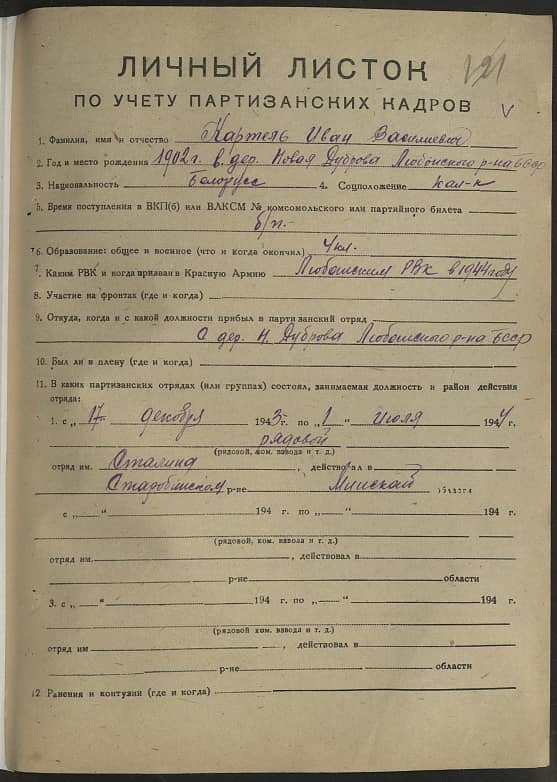 121
ЛИЧНЫЙ ЛИСТОК
ПО УЧЕТУ ПАРТИЗАНСКИХ КАДРОВ
V
1. Фамилия, имя и отчество Картель Иван Василиевич
2. Год и место рождения 1902 г. в дер. Новая Дуброва Любанского р-на БССР
3. Национальность Белорусс 4. Соцположение кол-к
5. Время поступления в ВКП(б) или ВЛКСМ № комсомольского или партийного билета
б/п.-
6. Образование: общее и военное (что и когда окончил) 4 кл.
7. Каким РВК и когда призван в Красную Армию Любанским РВК в 1944 году
8. Участие на фронтах (где и когда)
9. Откуда, когда и с какой должности прибыл в партизанский отряд
С дер. Н. Дуброва Любанского р-на БССР
10. Был ли в плену (где и когда)
11. В каких партизанских отрядах (или группах) состоял, занимаемая должность и район действия
отряда:
1. с „ 17 " декабря 1943 г. по „ 1 " июля 1944 г.
рядовой
(рядовой, ком. взвода и т. д.)
отряд им. Сталина, действовал в
Старобинском р-не Минской области
с „ " 194 г. по „ " 194 г.
(рядовой, ком. взвода и т. д.)
отряд им. , действовал в
р-не области
3. с „ " 194 г. по „ " 194 г.
(рядовой, ком. взвода и т. д.)
отряд им , действовал в
р-не области
12 Ранения и контузии (где и когда)